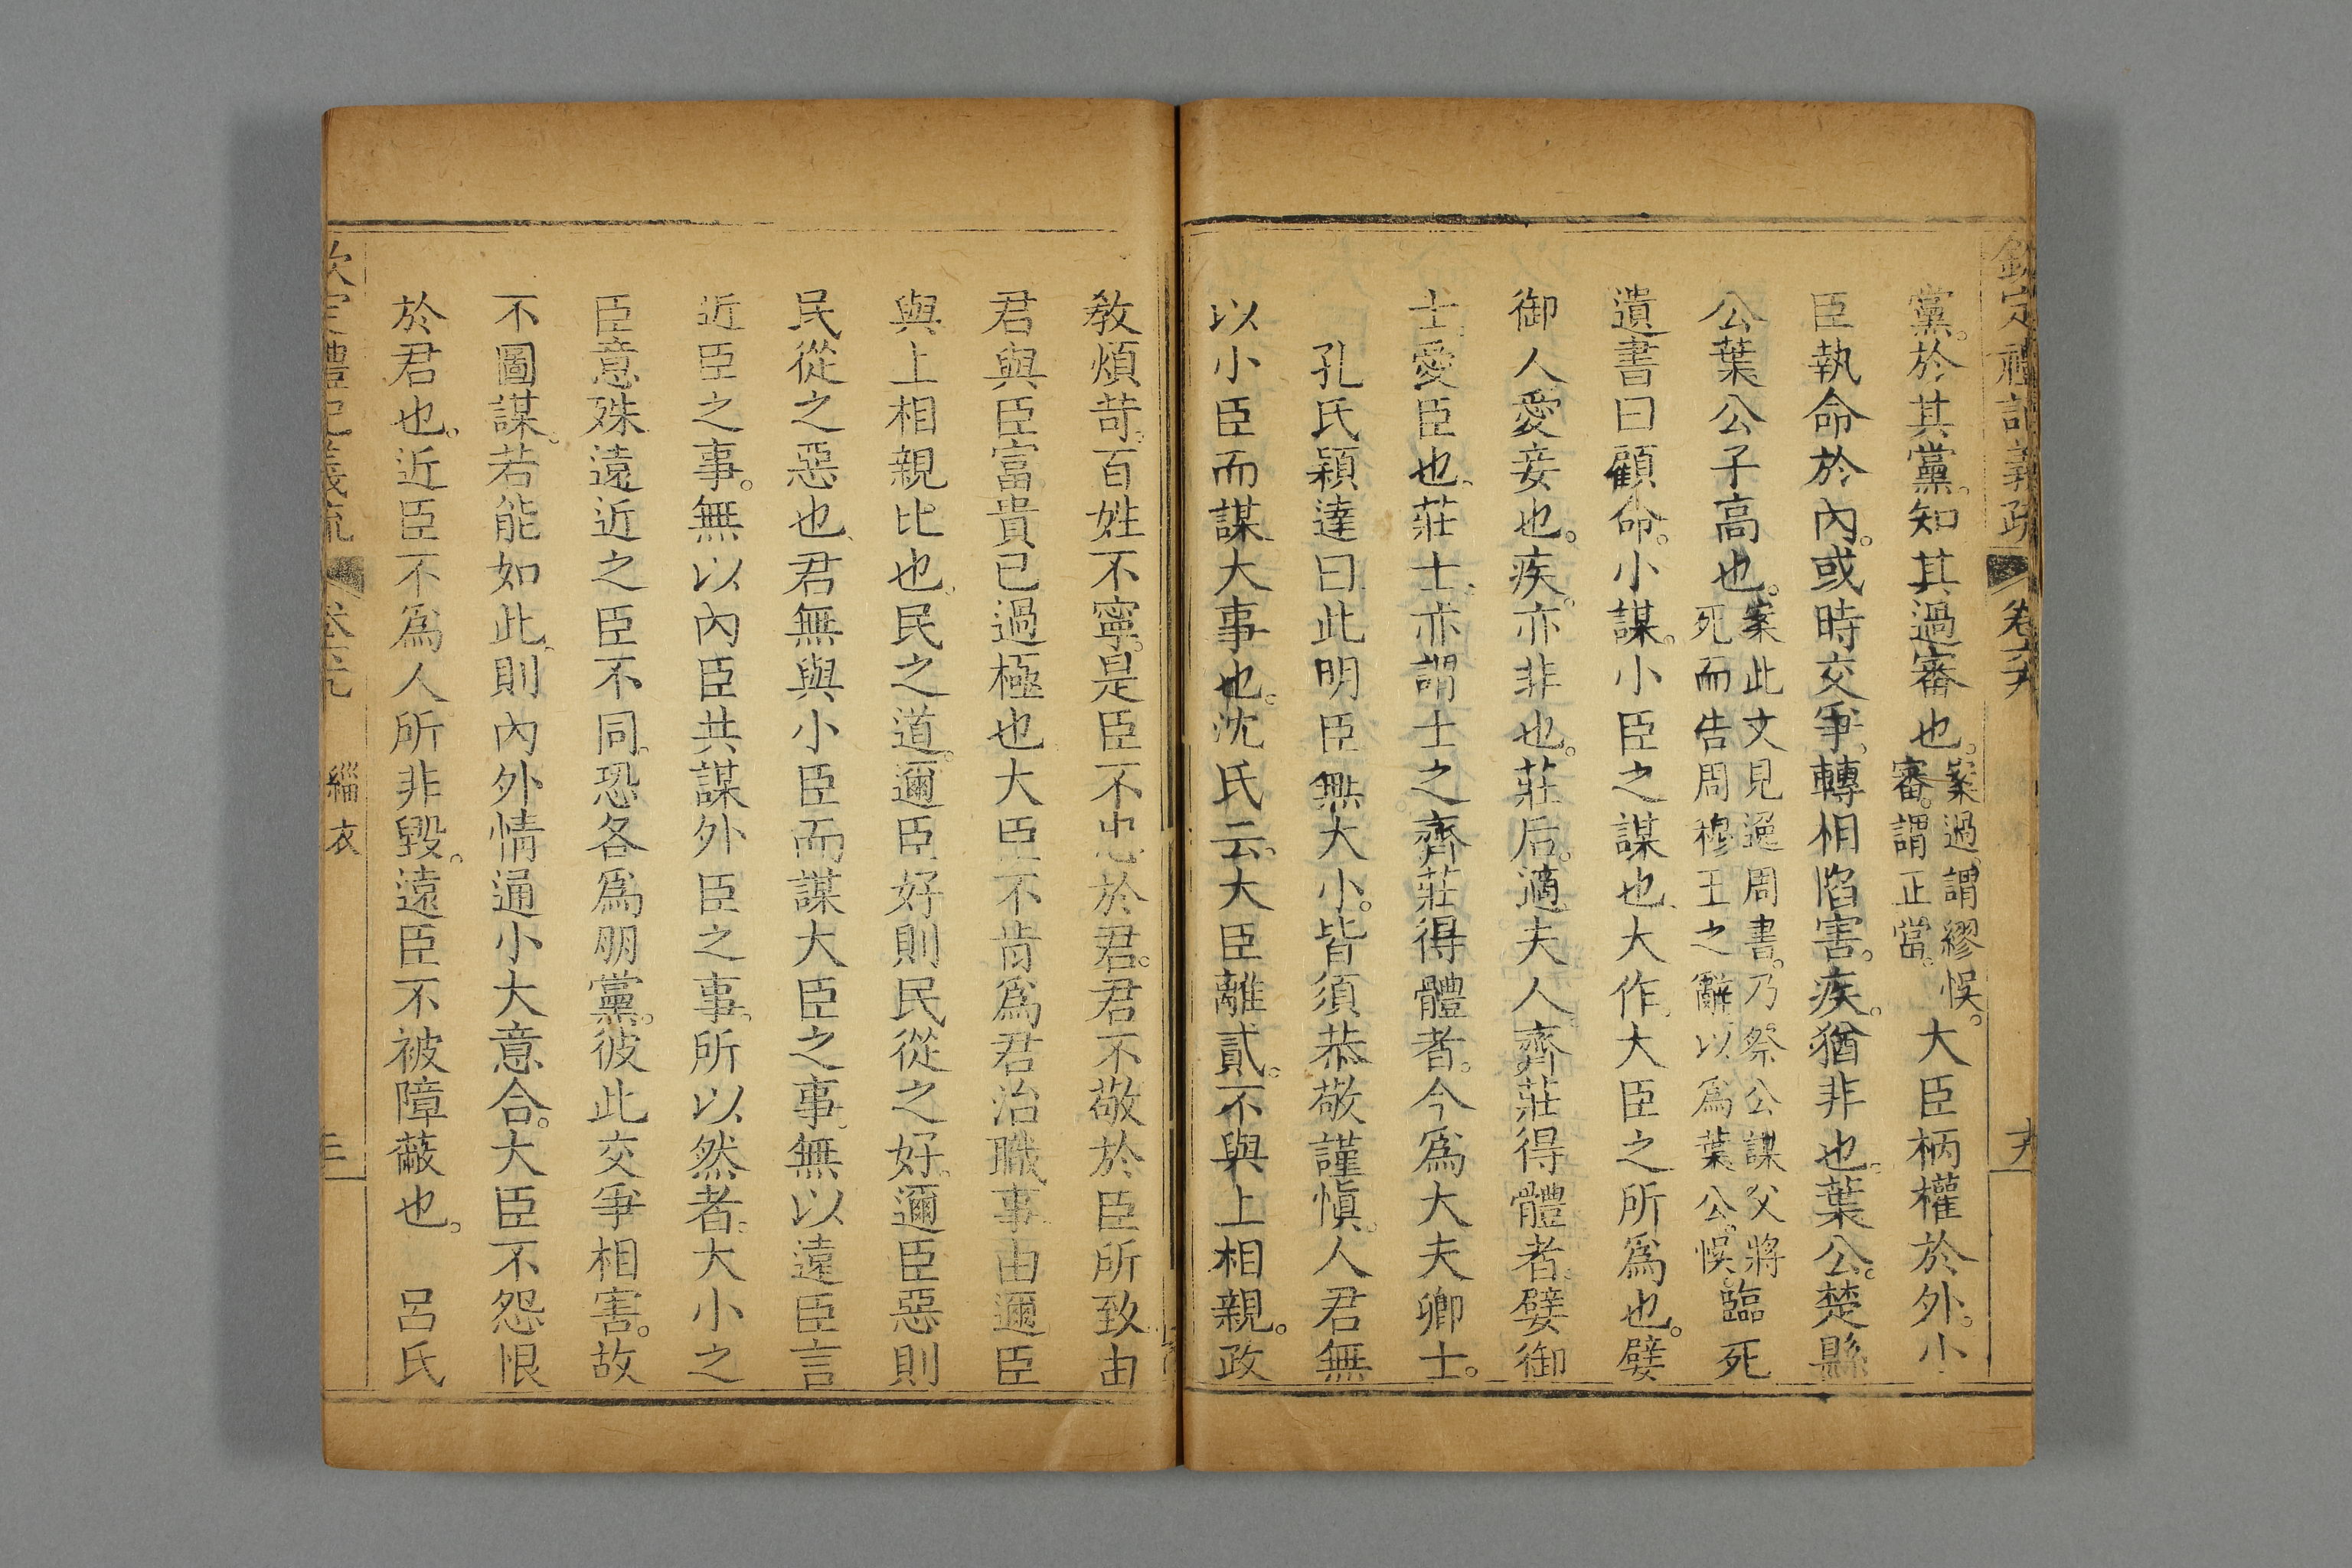 欽定禮記義疏 卷六九
黨。於其黨。知其過審也。案過。謂繆悞。審。謂正當。大臣柄權於外。小
臣執命於內。或時交爭。轉相陷害。疾。猶非也。葉公。楚縣
公葉公子高也。案此文見逸周書。乃祭公謀父將死而告周穆王之辭以爲葉公。悞。臨死
遺書曰顧命。小謀。小臣之謀也。大作。大臣之所爲也。嬖
御人愛妾也。疾。亦非也。莊后。適夫人齊莊得體者。嬖御
士。愛臣也。莊士。亦謂士之齊莊得體者。今爲大夫卿士。
孔氏穎達曰此明臣無大小。皆須恭敬謹愼。人君無
以小臣而謀大事也。沈氏云。大臣離貳。不與上相親。政
敎煩苛。百姓不寧。是臣不忠於君。君不敬於臣所致。由
君與臣富貴已過極也大臣不肯爲君治職事。由邇臣
與上相親比也。民之道。邇臣好則民從之好。邇臣惡則
民從之惡也。君無與小臣而謀大臣之事。無以遠臣言
近臣之事。無以內臣共謀外臣之事。所以然者。大小之
臣意殊遠近之臣不同。恐各爲朋黨。彼此交爭相害。故
不圖謀。若能如此。則內外情通小大意合。大臣不怨恨
於君也。近臣不爲人所非毀。遠臣不被障蔽也。 呂氏
欽定禮記義疏 卷六九 緇衣